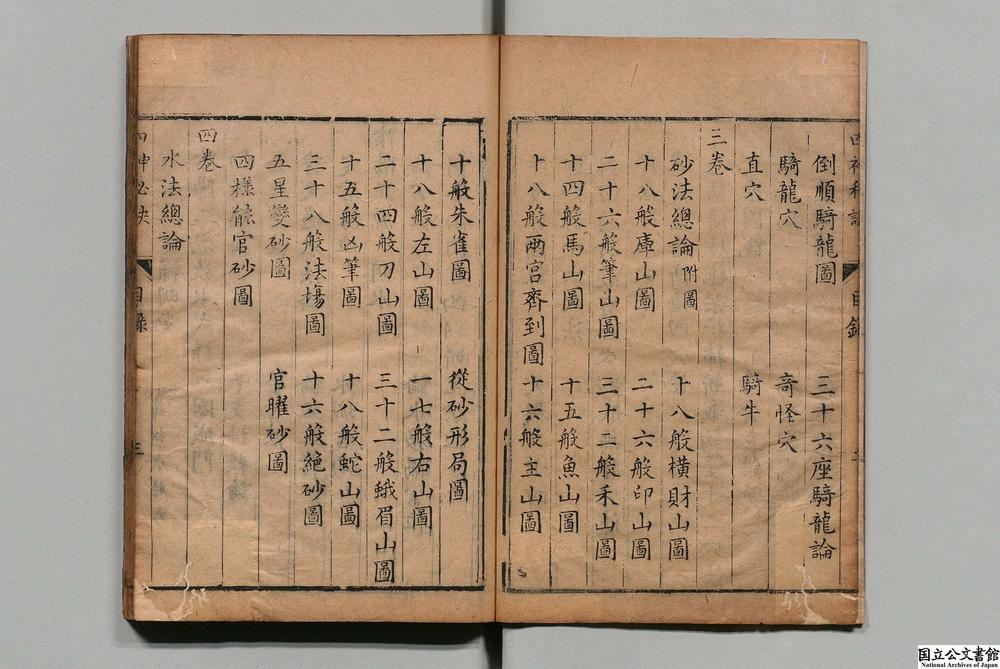 倒順騎龍圖 三十六座騎龍論
騎龍穴 竒怪穴
直穴 騎牛
三卷
砂法總論附圖 十八般横財山圖
十八般庫山圖 二十六般印山圖
二十六般筆山圖 三十二般禾山圖
十四般馬山圖 十五般魚山圖
十八般兩宫齊到圖 十六般主山圖
十般朱雀圖 從砂形局圖
十八般左山圖 一七般右山圖
二十四般刀山圖 三十二般蛾眉山圖
十五般凶筆圖 十八般蛇山圖
三十八般法塲圖 十六般絶砂圖
五星變砂圖 官曜砂圖
四樣能官砂圖
四卷
水法總論
目錄
国立公文書館
National Archives of Japan